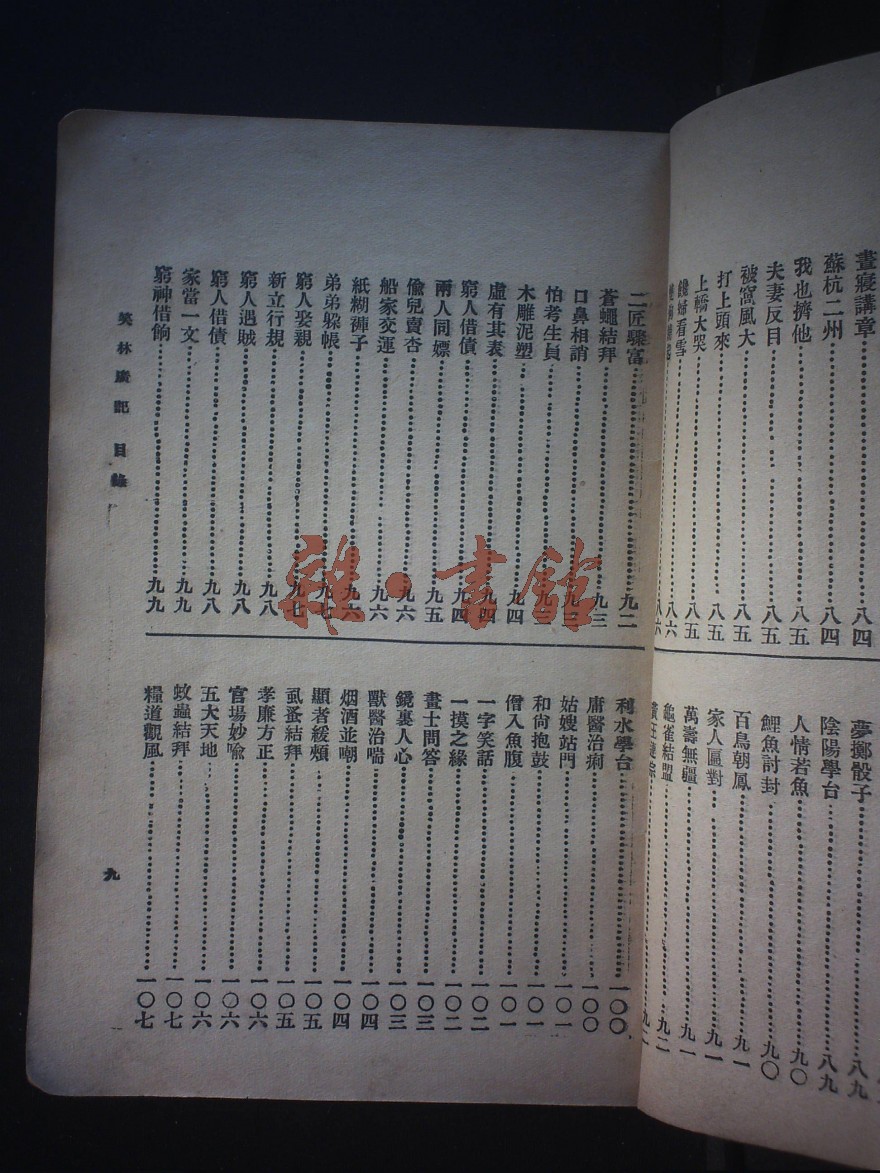 晝寢講章……八四
蘇杭二州……八四
我也擠他……八五
夫妻反目……八五
被窩風大……八五
打上頭來……八五
上轎大哭……八五
饞婦看雪……八六
八六
夢擲骰子……八九
陰陽學台……八九
人情若魚……九〇
鯉魚討封……九〇
百鳥朝鳳……九一
家人匾對……九一
萬壽無疆……九一
龜雀結盟……九二
九二
二匠驟富……九二
蒼蠅結拜……九三
口鼻相誚……九三
怕考生員……九三
木雕泥塑……九四
虛有其表……九四
窮人借債……九四
兩人同嫖……九五
偷兒賣杏……九六
船家交運……九六
紙糊褲子……九六
弟弟躲帳……九七
窮人娶親……九七
新立行規……九八
窮人遇賊……九八
窮人借債……九八
家當一文……九九
窮神借餉……九九
利水學台……一〇〇
庸醫治痢……一〇〇
姑嫂站門……一〇一
和尚抱鼓……一〇一
僧入魚腹……一〇一
一字笑話……一〇二
一摸之緣……一〇二
畫士問答……一〇三
錢裏人心……一〇三
獸醫治喘……一〇四
烟酒並嘲……一〇四
顯者緩頰……一〇五
虱蚤結拜……一〇五
孝廉方正……一〇六
官場妙喩……一〇六
五大天地……一〇六
蚊蟲結拜……一〇七
糧道觀風……一〇七
笑林廣記 目錄
九
雜·書館